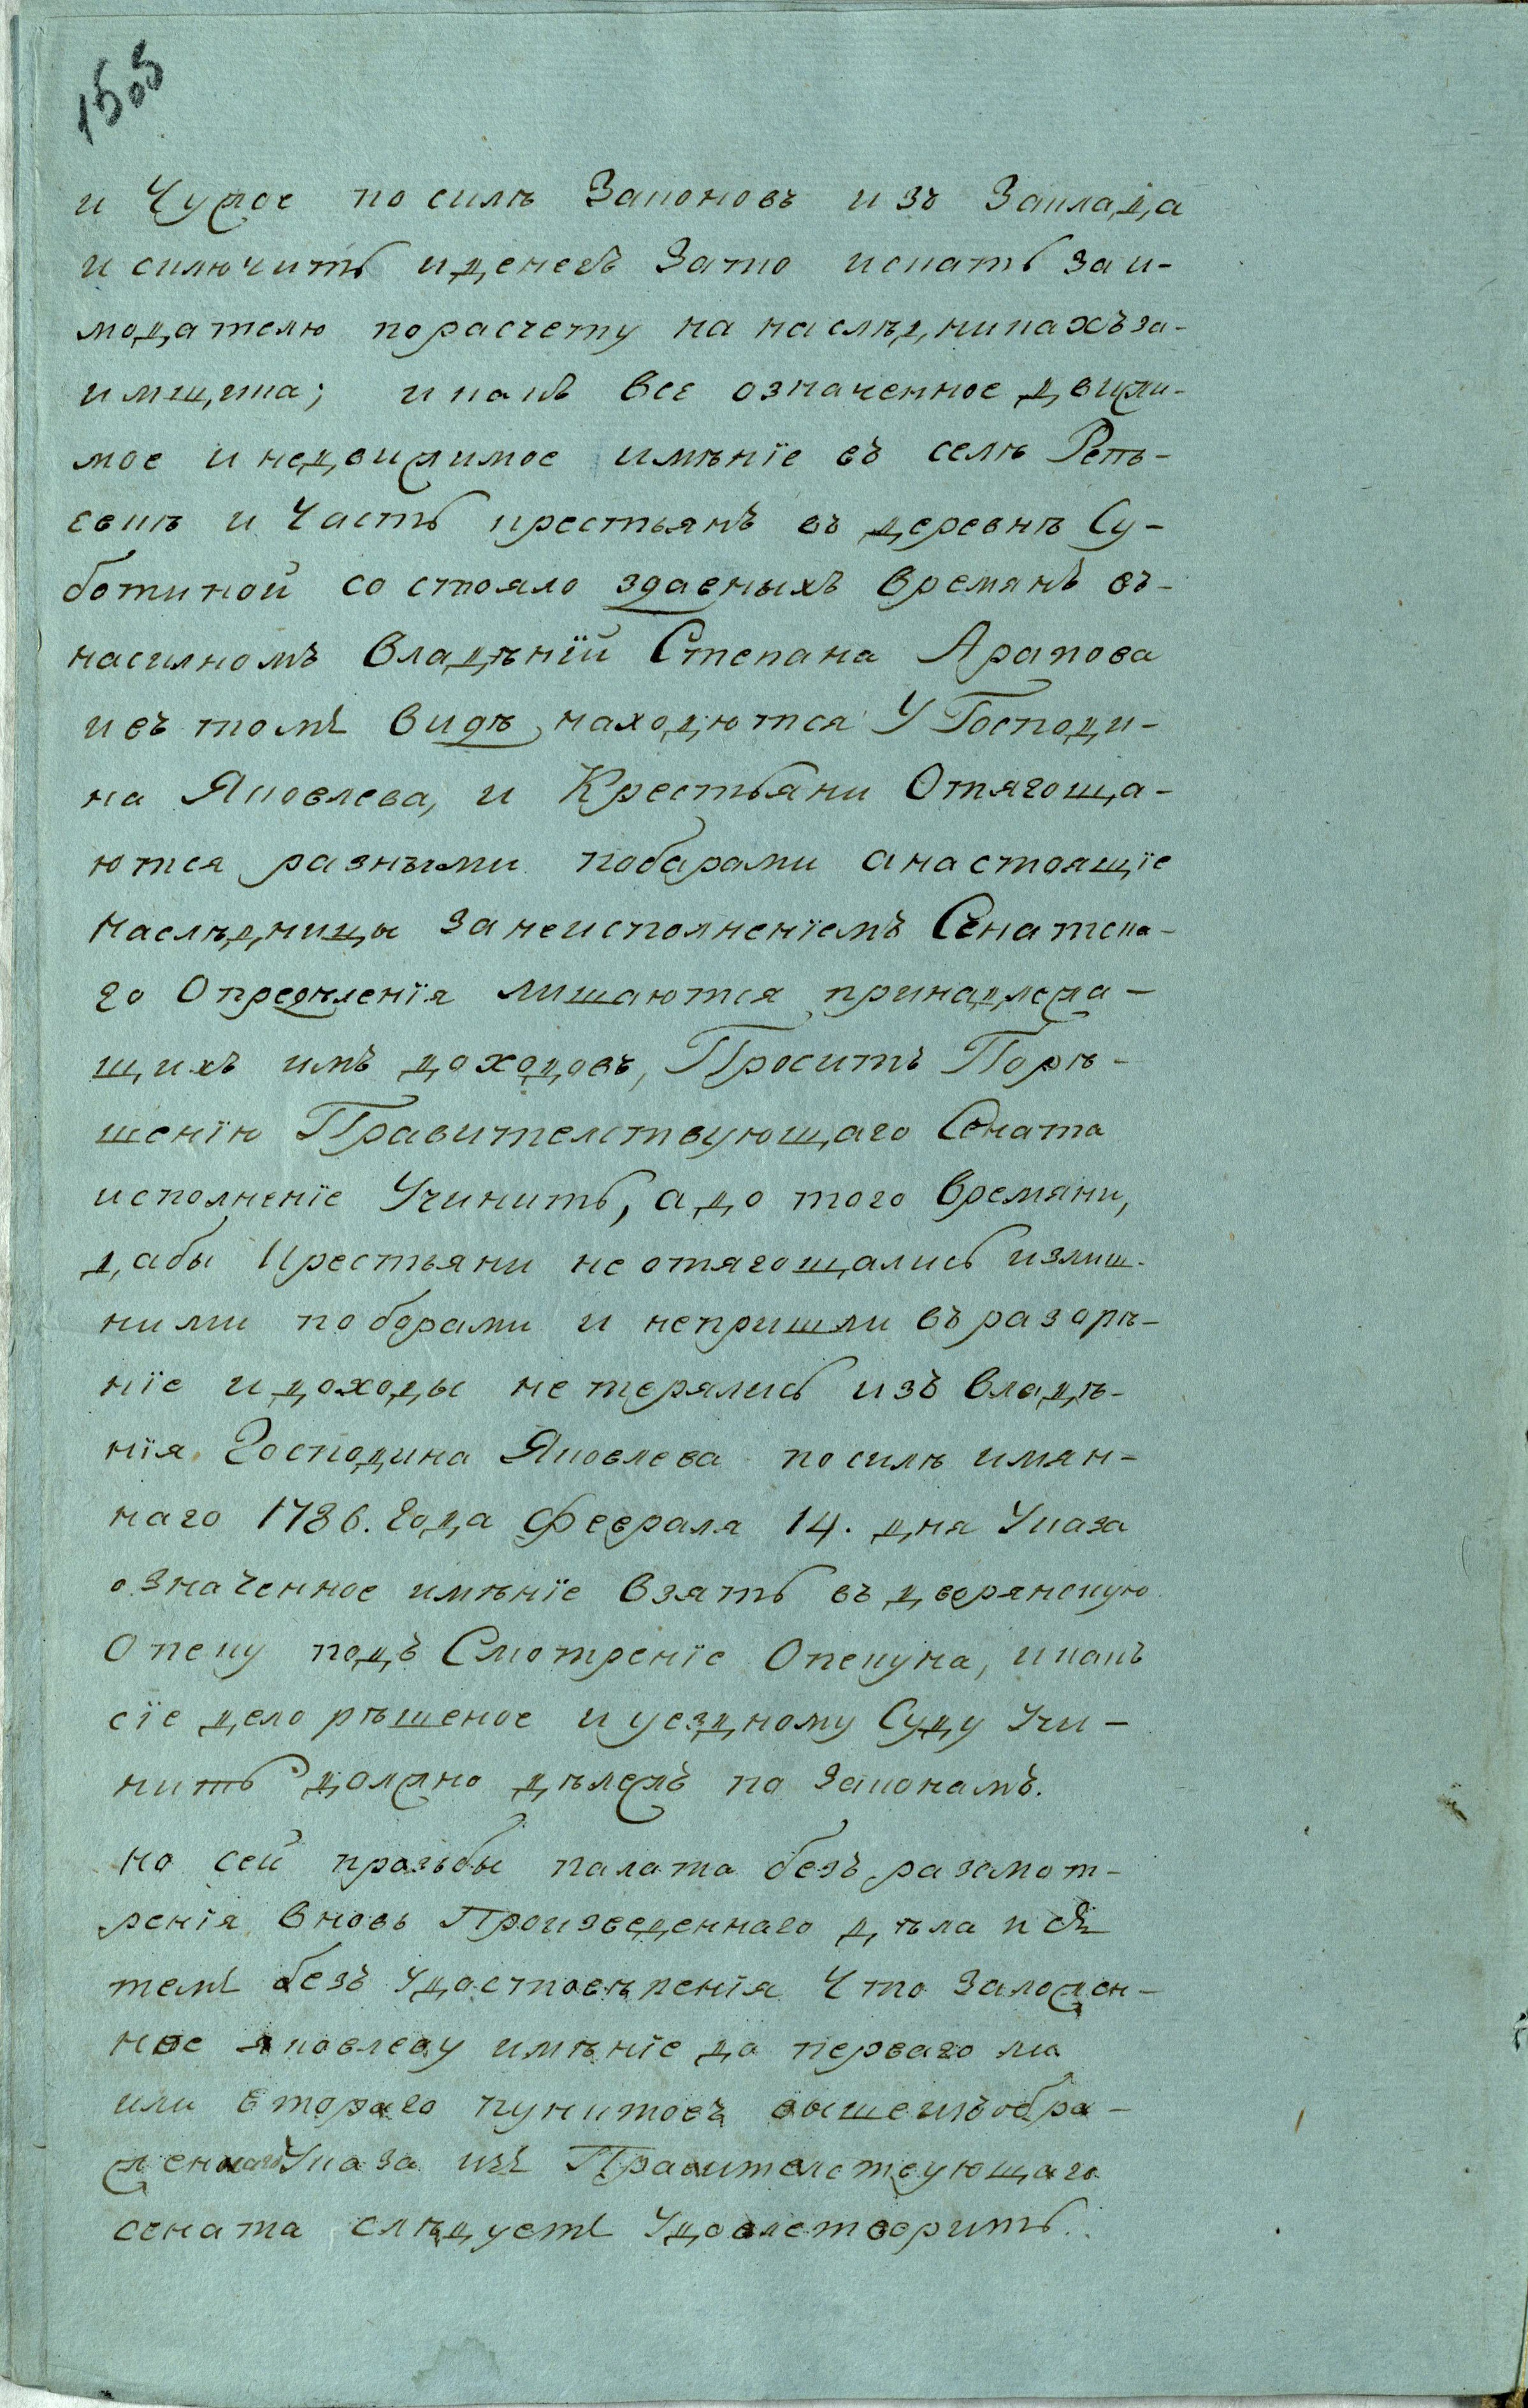 1505
и Чужое по силѣ Законовъ изъ Заклада
исключить иденегъ Зато искать заи-
модателю порасчету на наслѣдникахъ за-
имщика; икакъ все означенное движи-
мое инедвижимое имѣніе въ селѣ Репь-
евкѣ и Часть крестьянъ въ деревнѣ Су-
ботиной состояло здавныхъ времянъ въ-
насилномъ владѣніи Степана Арапова
ивъ томъ видѣ находются У Господи-
на Яковлева, и Крестьяни Отягоща-
ются разными поборами анастоящіе
наслѣдницы занеисполненіемъ Сенатска-
го Опредѣленія лишаются принадлежа-
щихъ имъ доходовъ, Проситъ Порѣ-
шенію Правителствующаго Сената
исполненіе Учинить, адо того времяни,
дабы Крестьяни неотягощались излиш-
ними поборами и непришли въ разорѣ-
ніе идоходы нетерялись изъ владѣ-
нія Господина Яковлева посилѣ имян-
наго 1786. Года февраля 14. дня Указа
означенное имѣніе взять въ дворянскую
Опеку подъ Смотреніе Опекуна, икакъ
сіе дело рѣшеное и уездному Суду Учи-
нить должно дѣлежъ по Законамъ.
но сей прозьбы палата безъ разсмот-
ренія вновь Произведеннаго дѣла
темъ безъ Удостовѣренія Что заложен-
ное яковлеву имѣніе до перваго ли
или втораго пунктовъ вышеизъобра-
женнаго Указа изъ Правителствующаго
сената слѣдуетъ Удовлетворить.